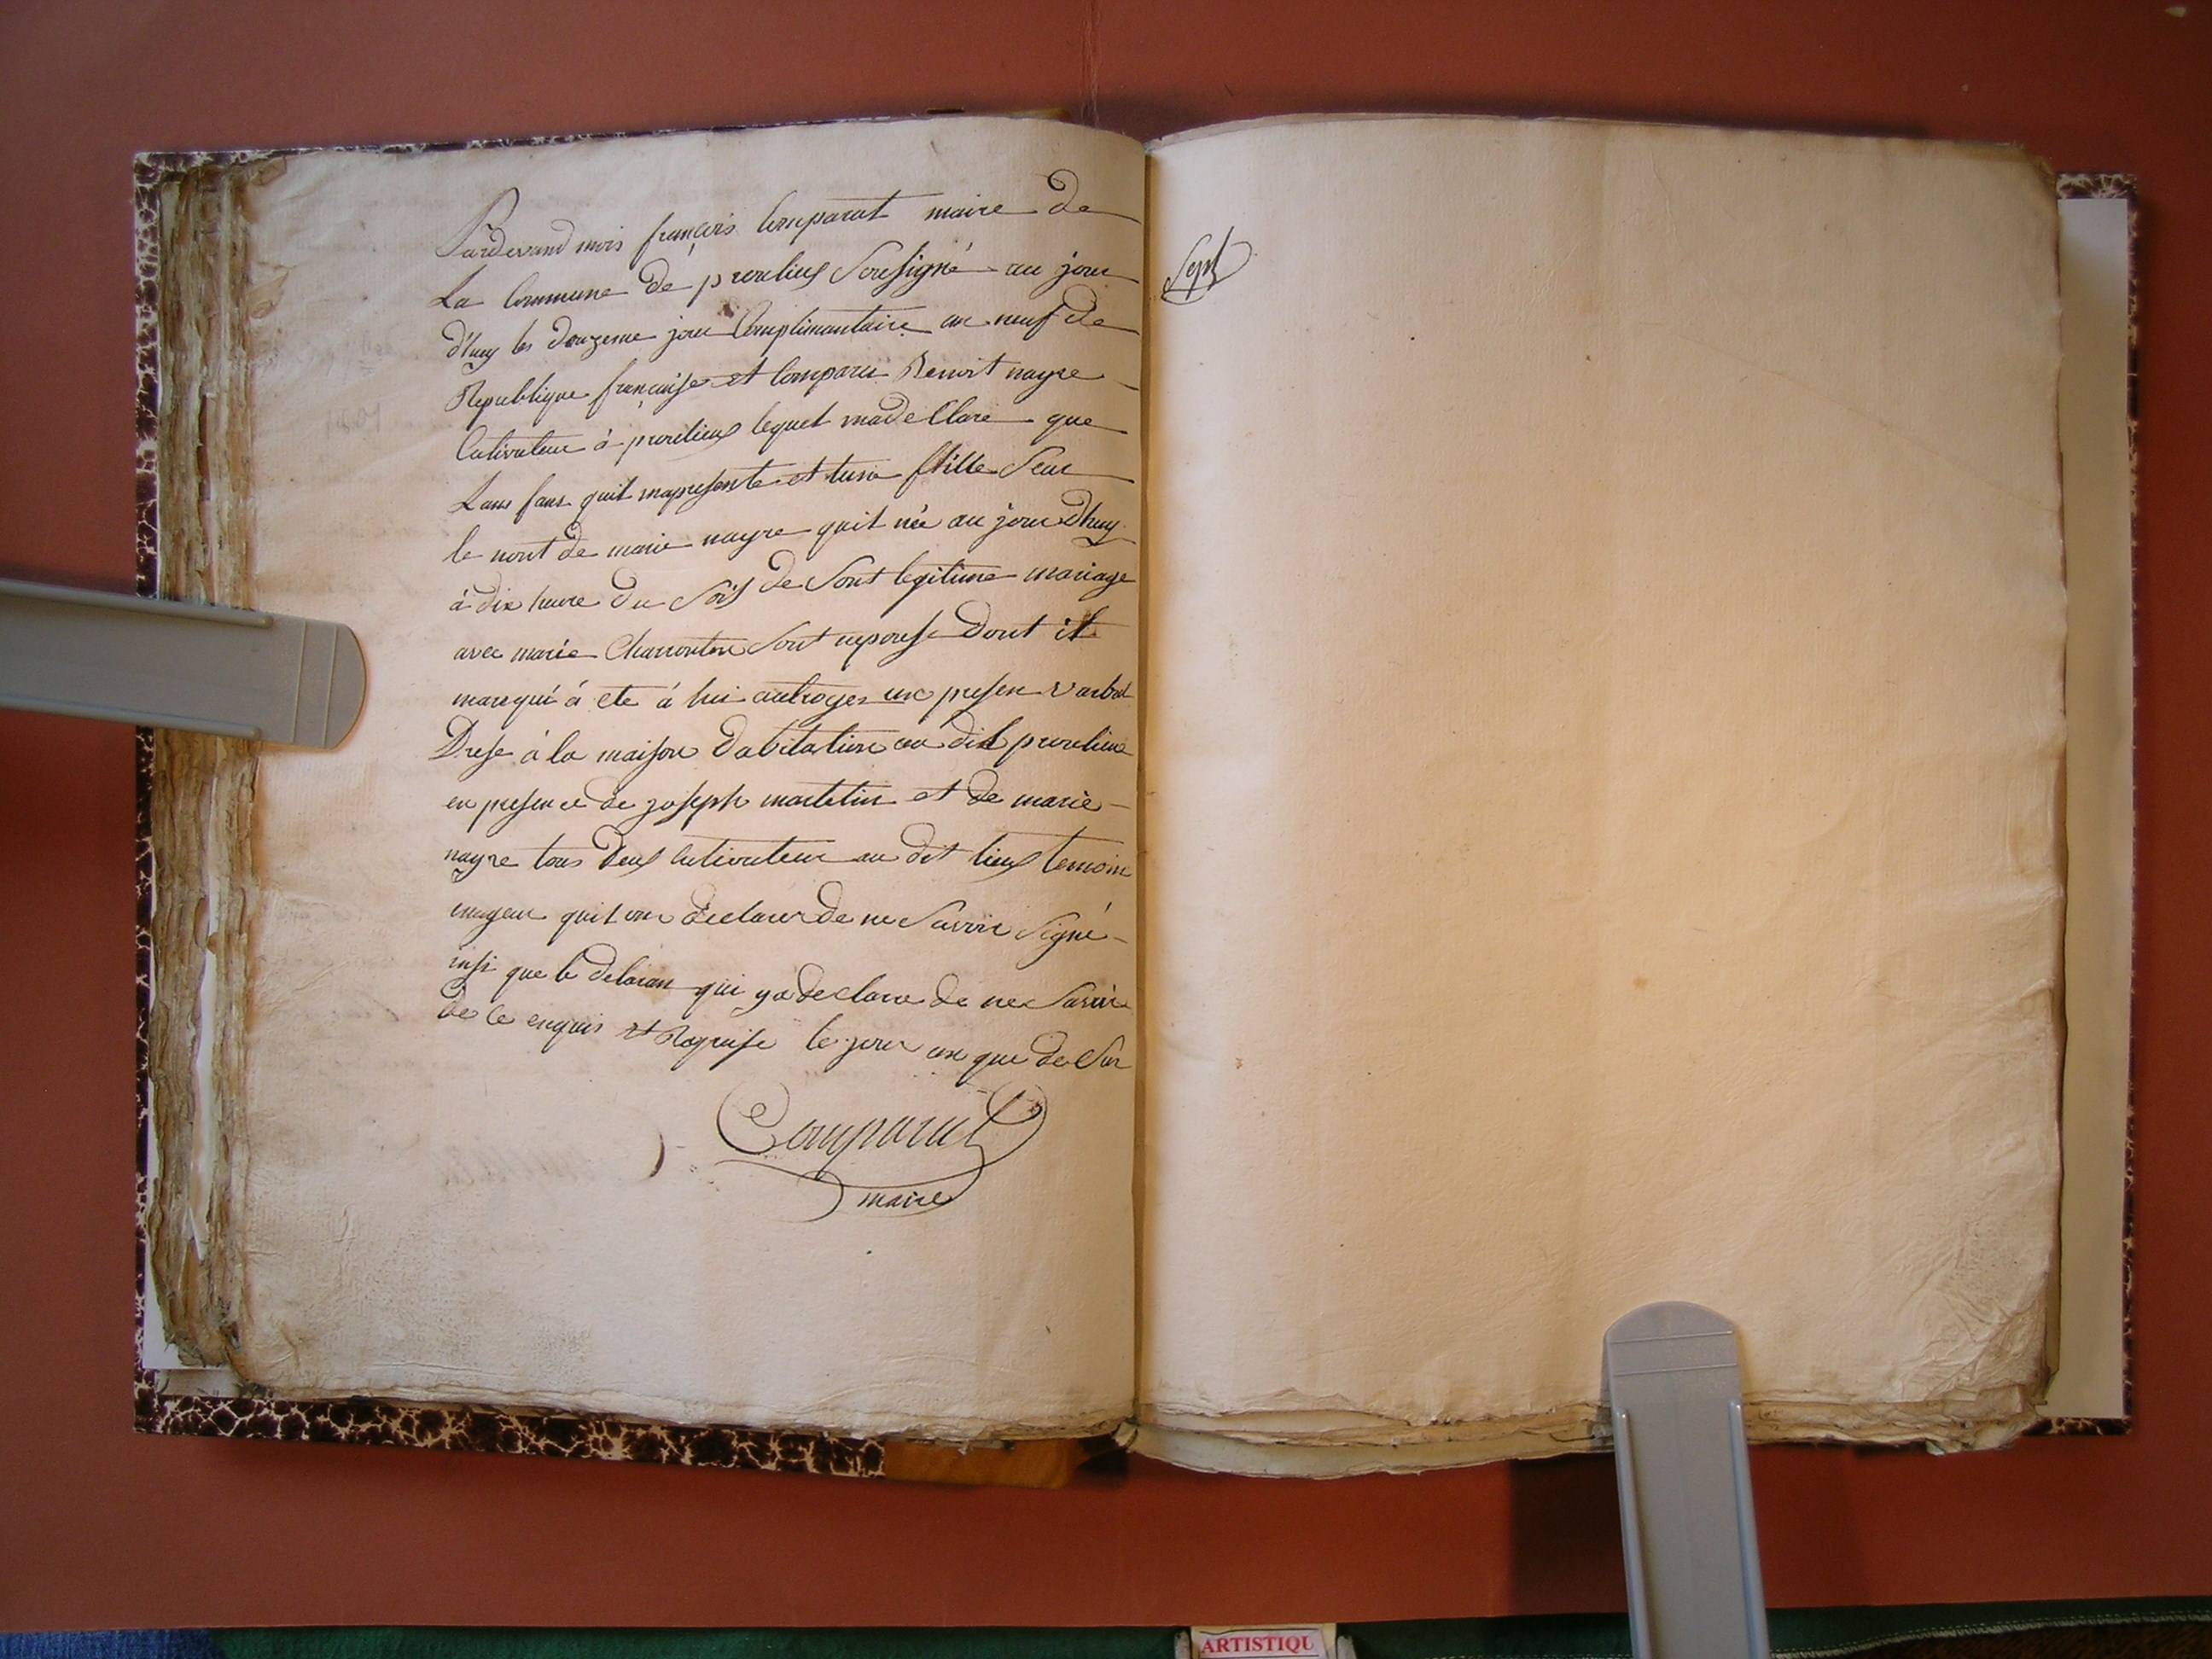 Pardevand mois françois Comparat maire de
La Commune de prevelieux Sousigné au jour
d'huy les douzeme jour Complimantaire an neuf de
Republique française et Comparu Benoit nayre
Cutivateur à lequel madeClare que
Lans fans quil mapresente et tune fille Sour
le nont de marie nayre quit née au jour dhuy
à dix heure du Soir de Sont legitime mariage
avec marie Sont epouse Dont il
marequi à ete à lui autroyer un presen varbal
Drese à la maison Dabitation au dit
en presence de joseph martelin et de marie
nayre tous deux Cutivateur au dit lieux temoin
mageur quit on declarer de ne Savoir Signé
insi que le delaran qui ya declare de ne Savoir
de Ce enquis et Requise le jour an que de Sur
Comparat
maire
Sept
ARTISTIQU